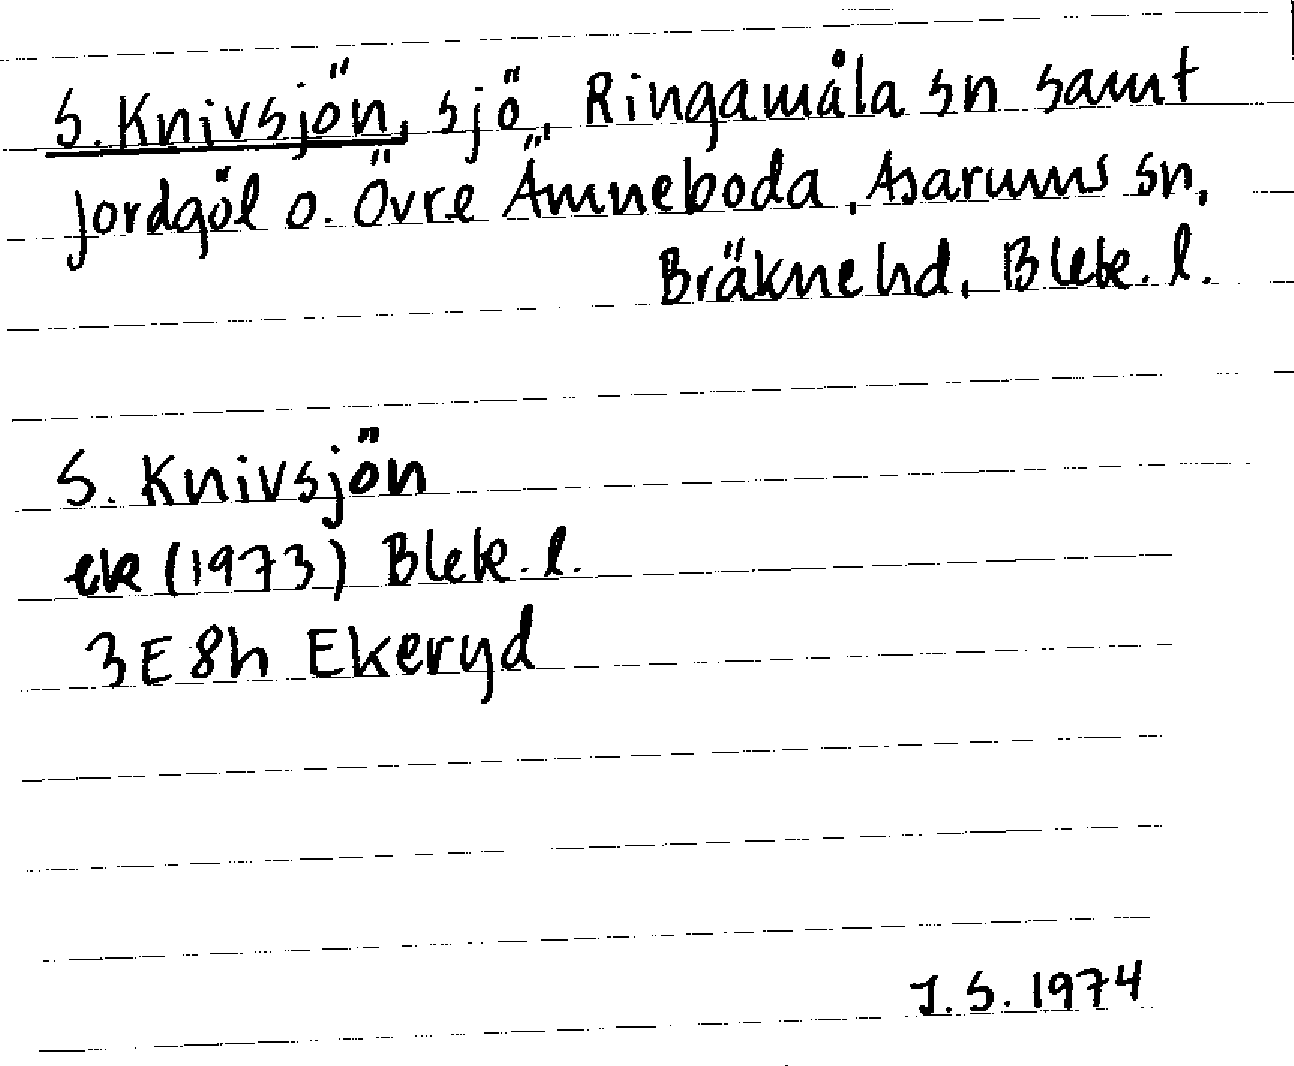 S. Knivsjön, sjö, Ringamåla sn samt
Jordgöl o. Övre Ämneboda, Asarums sn,
Bräkne hd, Blek. l.
S. Knivsjön
ek (1973) Blek. l.
3E 8h Ekeryd
J.S. 1974